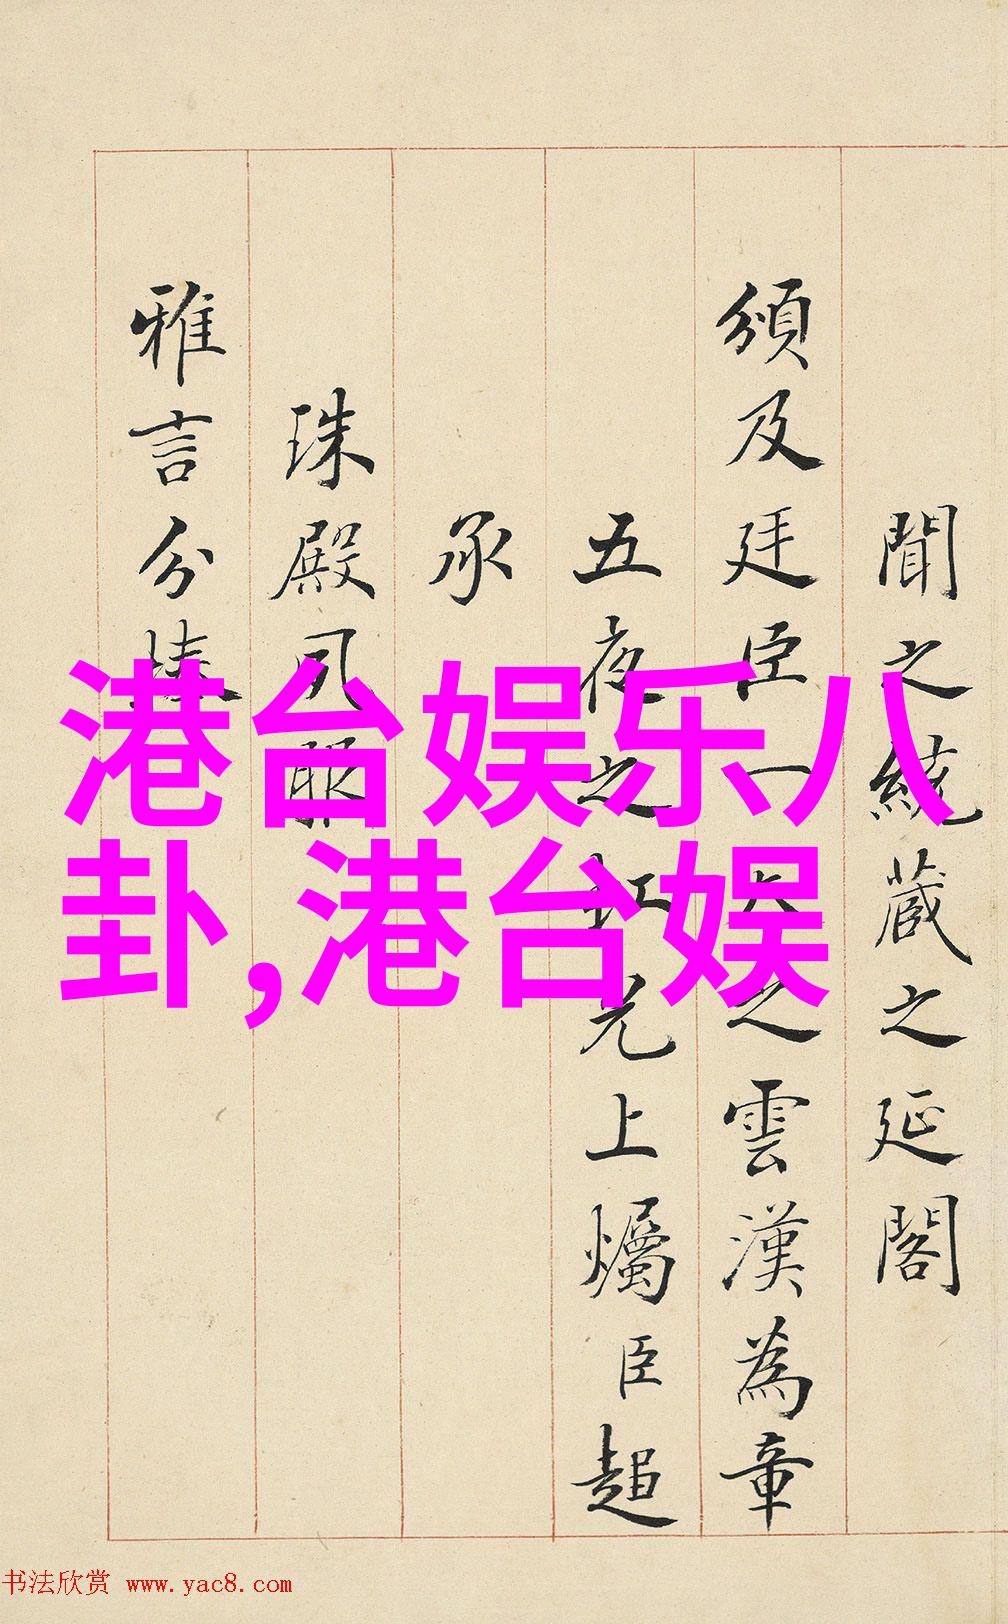 聞之繞蔵之延閣
頒及廷臣一之雲漢為章
五夜之虹光上爥臣超
承
珠殿夙
雅言分
港台娱乐八
卦,港台娱
书法欣赏 www.yac8.com